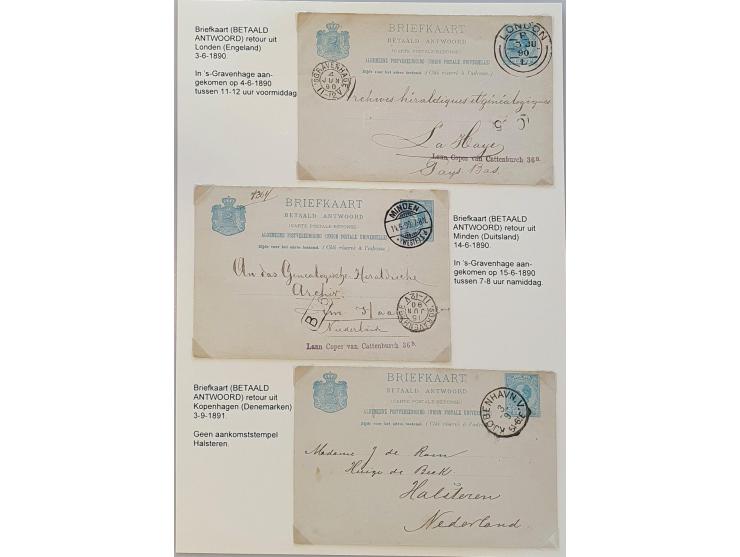 Briefkaart (BETAALD
ANTWOORD) retour uit
Londen (Engeland)
3-6-1890.
In 's-Gravenhage aan-
gekomen op 4-6-1890
tussen 11-12 uur voormiddag.
BRIEFKAART
BETAALD ANTWOORD
(CARTE POSTALE-RÉPONSE)
ALGEMEENE POSTVEREENIGING (UNION POSTALE UNIVERSELLE)
Zijde voor het adres bestemd. (Côté réservé à l'adresse.)
LONDON
90
'SGRAVENHAGE
4
JUN
90
Archives héraldiques et généalogiques
La Haye
Laan Copes van Cattenburch 36a.
Pays Bas.
Briefkaart (BETAALD
ANTWOORD) retour uit
Minden (Duitsland)
14-6-1890.
In 's-Gravenhage aan-
gekomen op 15-6-1890
tussen 7-8 uur namiddag.
BRIEFKAART
BETAALD ANTWOORD
(CARTE POSTALE-RÉPONSE)
ALGEMEENE POSTVEREENIGING (UNION POSTALE UNIVERSELLE)
Zijde voor het adres bestemd. (Côté réservé à l'adresse.)
MINDEN
(WESTF.)
An das Genealogische Heraldische
Archiv
Im Haag
Niederland
B
'SGRAVENHAGE
15
JUN
90
Laan Copes van Cattenburch 36a.
Briefkaart (BETAALD
ANTWOORD) retour uit
Kopenhagen (Denemarken)
3-9-1891.
Geen aankomststempel
Halsteren.
BRIEFKAART
BETAALD ANTWOORD
(CARTE POSTALE-RÉPONSE)
ALGEMEENE POSTVEREENIGING (UNION POSTALE UNIVERSELLE)
Zijde voor het adres bestemd. (Côté réservé à l'adresse.)
KJØBENHAVN.V.
Madame J de Ram
Huize de Beek
Halsteren
Nederland.